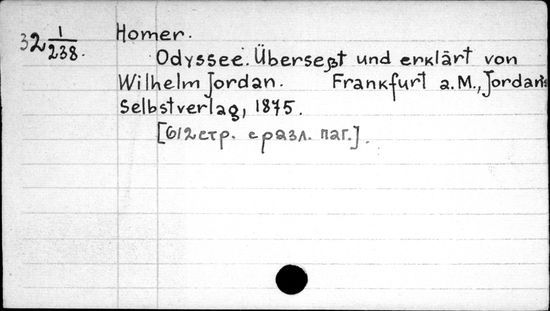 32 1/238. Homer.
Odyssee. Überseßt und erklärt von
Wilhelm Jordan. Frankfurt a.M., Jordans
Selbstverlag, 1875.
[612 стр. с разл. паг.].